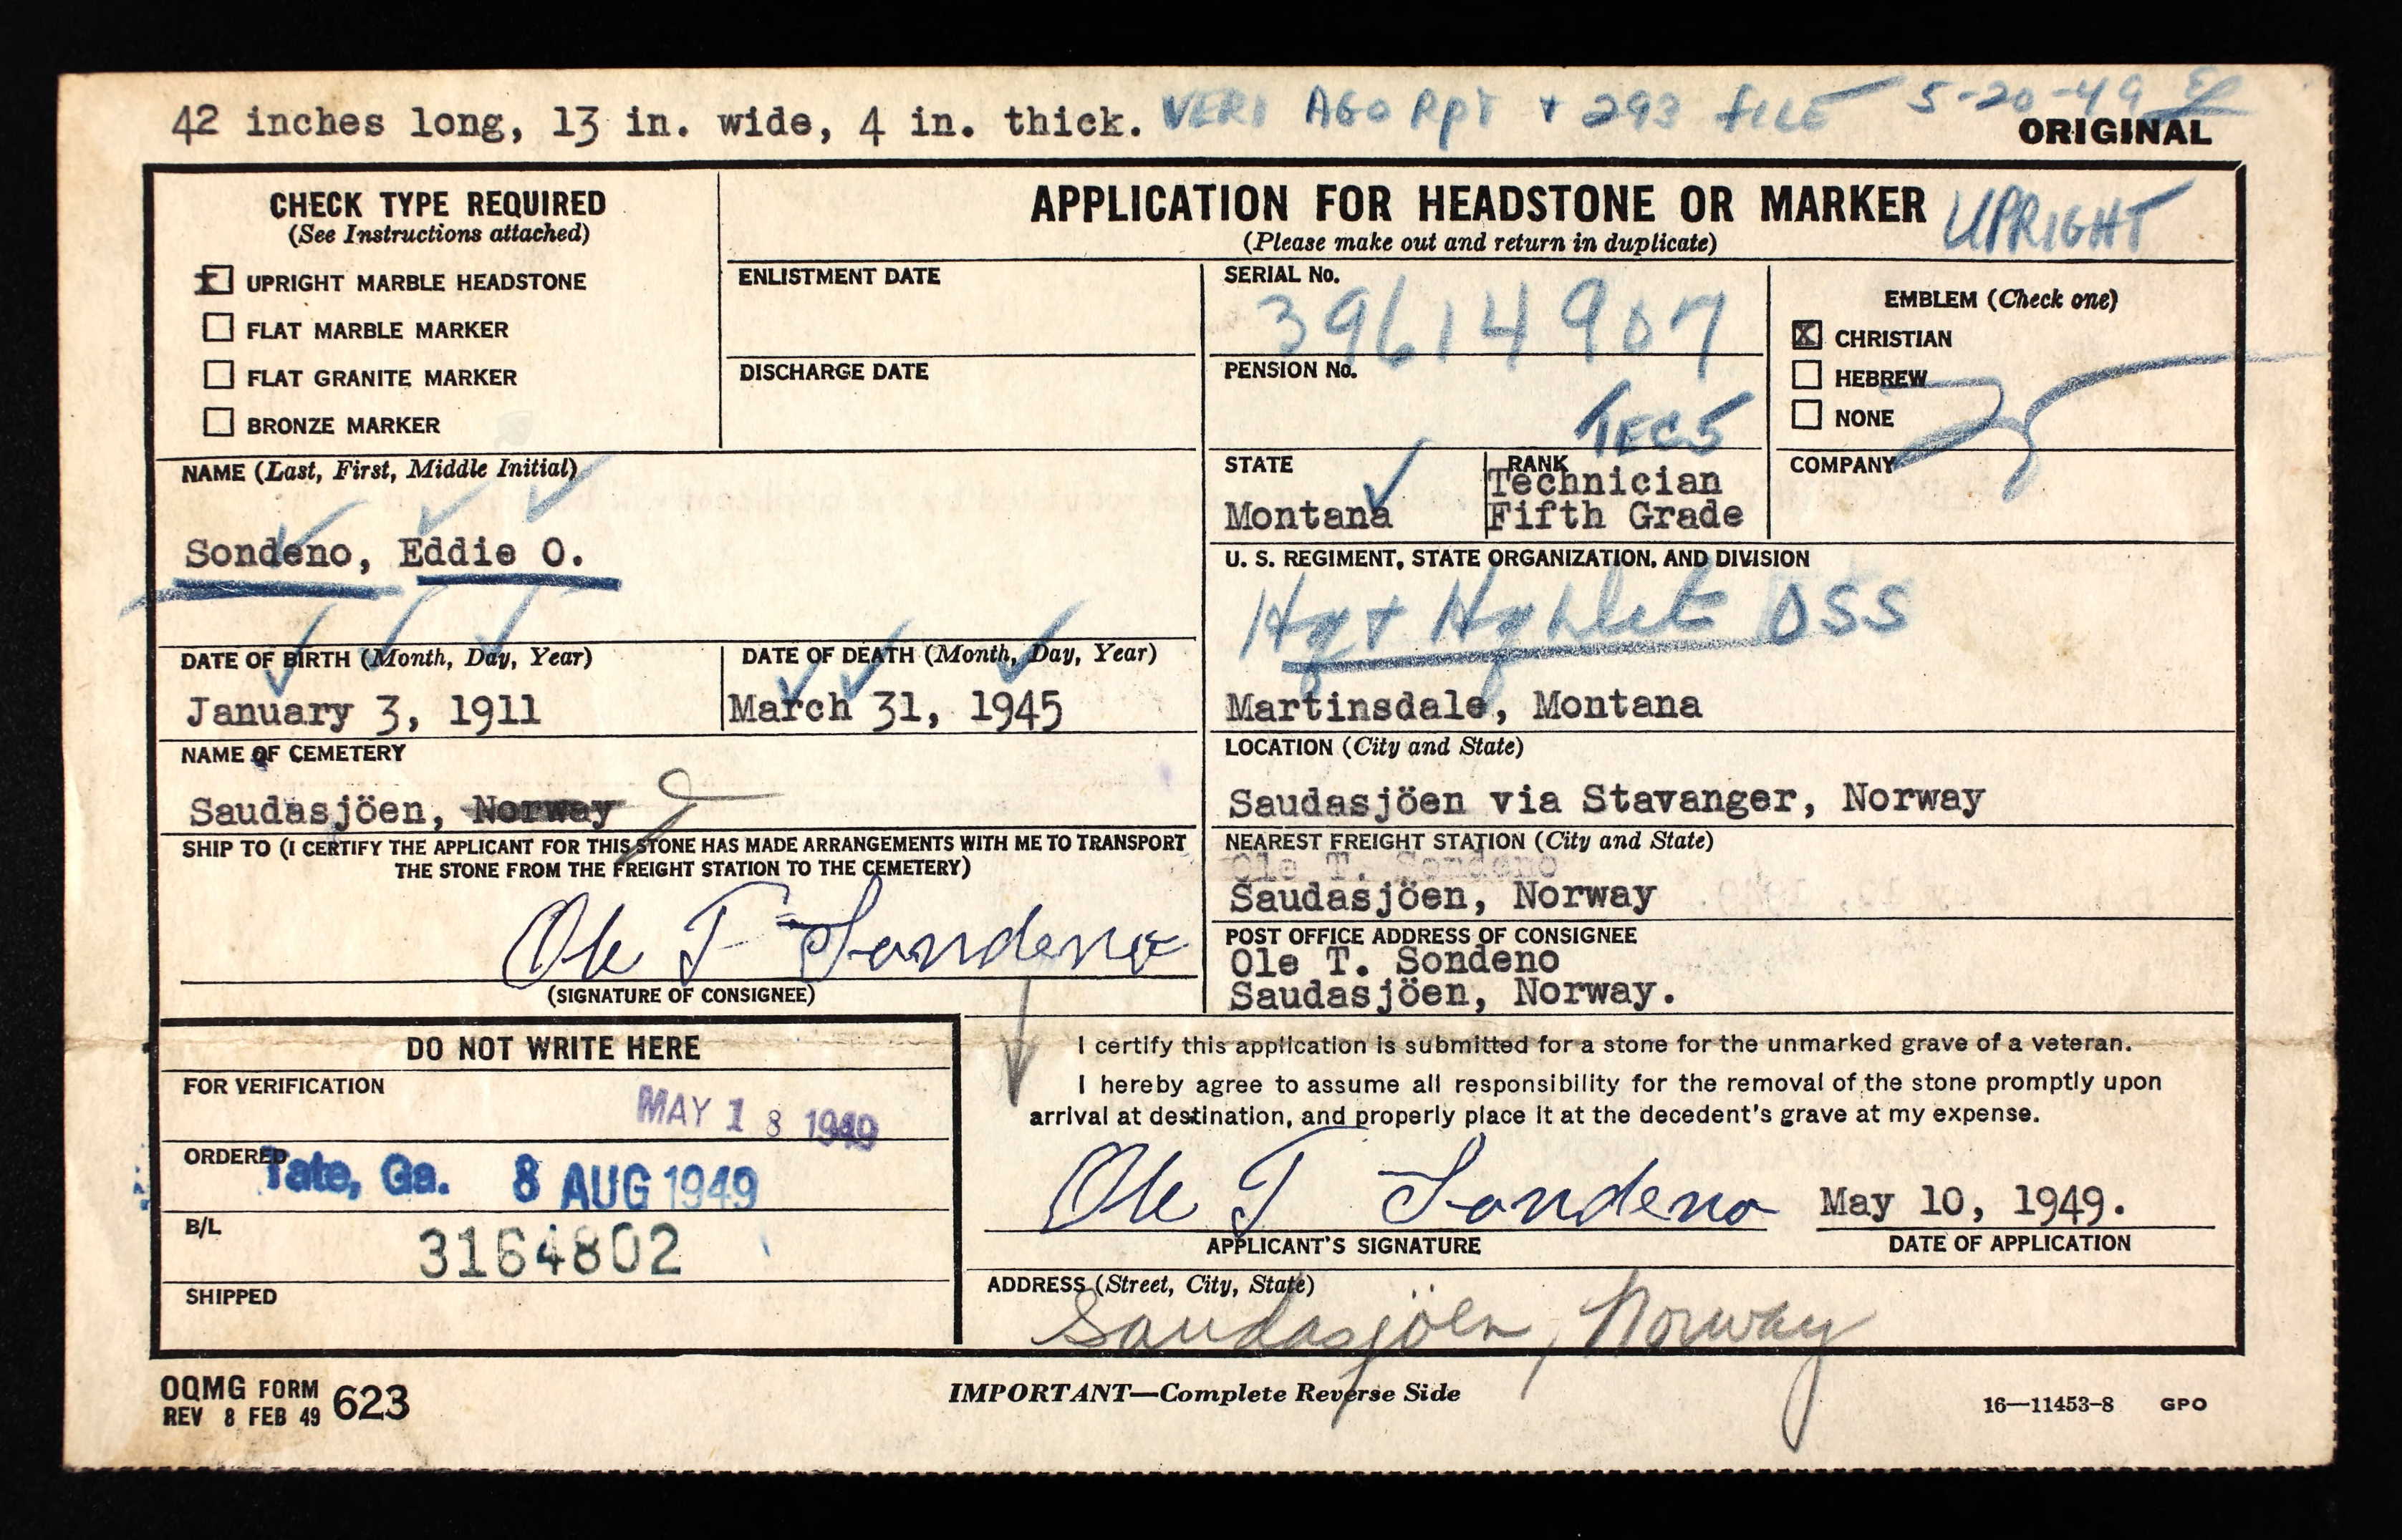 42 inches long, 13 in. wide, 4 in. thick. VERI AGO Rpt + 293 FILE 5-20-49
ORIGINAL
CHECK TYPE REQUIRED
(See Instructions attached)
UPRIGHT MARBLE HEADSTONE
FLAT MARBLE MARKER
FLAT GRANITE MARKER
BRONZE MARKER
APPLICATION FOR HEADSTONE OR MARKER UPRIGHT
(Please make out and return in duplicate)
ENLISTMENT DATE
DISCHARGE DATE
SERIAL No.
39614907
PENSION No.
TEC5
EMBLEM (Check one)
X CHRISTIAN
HEBREW
NONE
NAME (Last, First, Middle Initial)
Sondeno, Eddie O.
STATE
Montana
RANK
Technician
Fifth Grade
COMPANY
U. S. REGIMENT, STATE ORGANIZATION, AND DIVISION
Hq + Hq Det OSS
Martinsdale, Montana
DATE OF BIRTH (Month, Day, Year)
January 3, 1911
DATE OF DEATH (Month, Day, Year)
March 31, 1945
NAME OF CEMETERY
Saudasjöen, Norway
LOCATION (City and State)
Saudasjöen via Stavanger, Norway
SHIP TO (I CERTIFY THE APPLICANT FOR THIS STONE HAS MADE ARRANGEMENTS WITH ME TO TRANSPORT
THE STONE FROM THE FREIGHT STATION TO THE CEMETERY)
Ole T Sondeno
(SIGNATURE OF CONSIGNEE)
NEAREST FREIGHT STATION (City and State)
Ole T. Sondeno
Saudasjöen, Norway
POST OFFICE ADDRESS OF CONSIGNEE
Ole T. Sondeno
Saudasjöen, Norway.
DO NOT WRITE HERE
FOR VERIFICATION
MAY 18 1949
ORDERED
Tate, Ga. 8 AUG 1949
B/L
3164802
SHIPPED
I certify this application is submitted for a stone for the unmarked grave of a veteran.
I hereby agree to assume all responsibility for the removal of the stone promptly upon
arrival at destination, and properly place it at the decedent's grave at my expense.
Ole T Sondeno May 10, 1949.
APPLICANT'S SIGNATURE DATE OF APPLICATION
ADDRESS (Street, City, State)
Saudasjöen, Norway
OQMG FORM 623
REV 8 FEB 49
IMPORTANT—Complete Reverse Side
16—11453-8 GPO